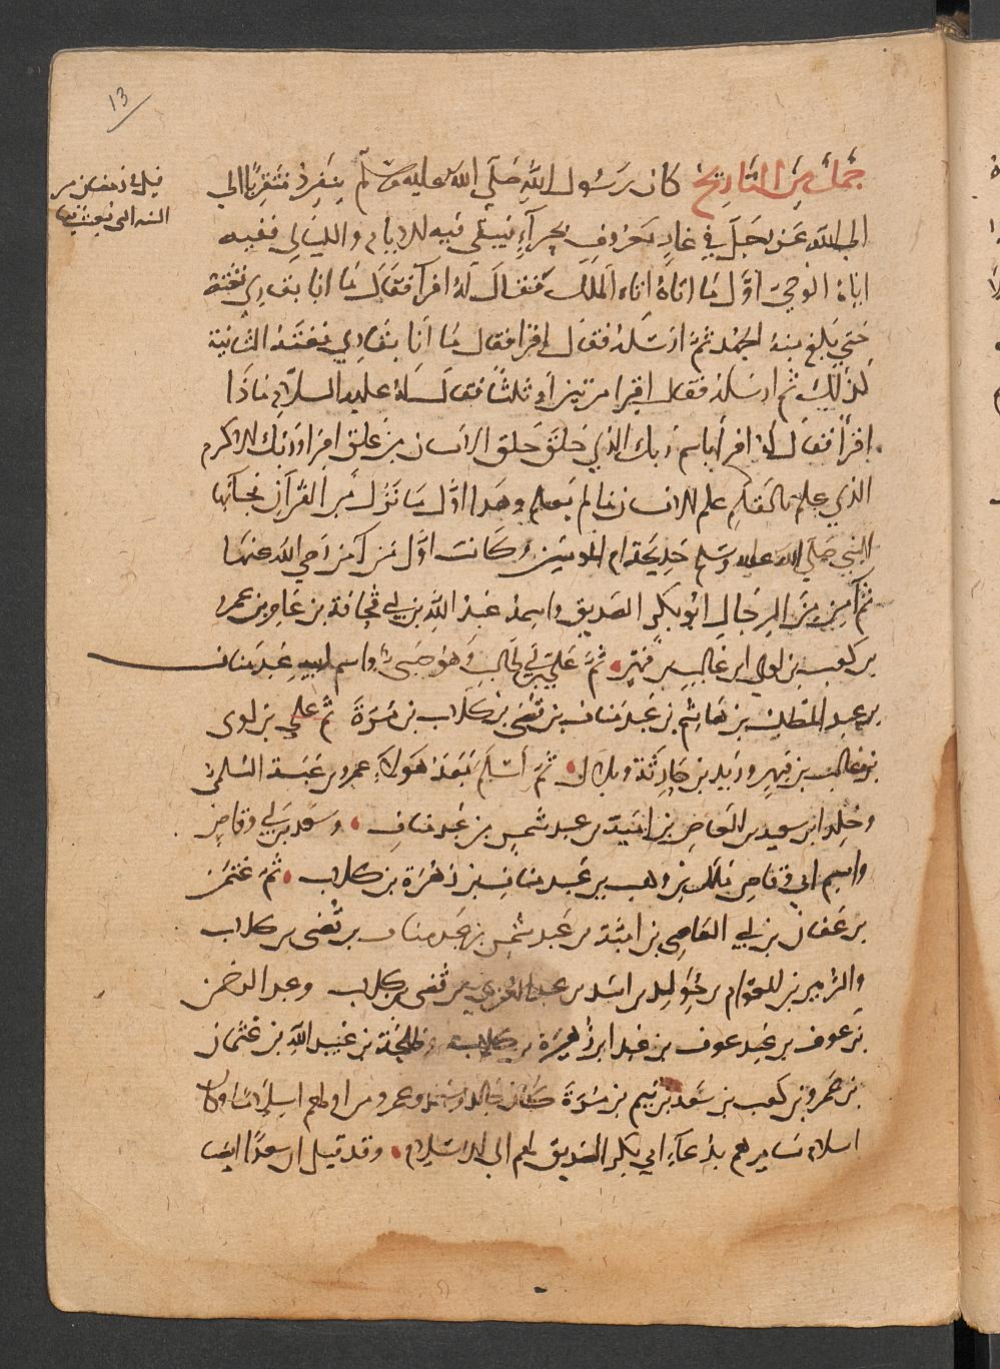 13
جمل من التاريخ كان رسول الله صلى الله عليه وسلم ينفرد متقربا الى
الى الله عز وجل في غار معروف بحراء فيبقى فيه الايام والليالى ففيه
اتاه الوحي اول ما اتاه اتاه الملك فقال له اقرا فقال ما انا بقاري فغته
حتى بلغ منه الجهد ثم ارسله فقال اقرا فقال ما انا بقاري فغته الثانية
كذلك ثم ارسله فقال اقرا مرتين او ثلثا فقال له عليه السلام ماذا
اقرأ فقال له اقرأ باسم ربك الذي خلق خلق الانسان من علق اقرا وربك الاكرم
الذي علم بالقلم علم الانسان ما لم يعلم وهذا اول ما نزل من القرآن فجآ بها
النبي صلى الله عليه وسلم خديجة ام المومنين وكانت اول من آمن رضي الله عنها
ثم آمن من الرجال ابو بكر الصديق واسمه عبد الله بن ابي قحافة بن عامر بن عمرو
بن كعب بن لوى ابن غالب بن فهر ثم علي بن ابي طالب وهو صبي واسم ابيه عبد مناف
بن عبد المطلب بن هاشم بن عبد مناف بن قصى بن كلاب بن مرة ثم علي بن لوى
بن غالب بن فهر وزيد بن حارثة وبلال ثم اسلم بعد هولاء عمرو بن عبسة السلمي
وخلد ابن سعيد بن العاص بن امية بن عبد شمس بن عبد مناف وسعد بن ابي وقاص
واسم ابي وقاص ملك بن وهب بن عبد مناف بن زهرة بن كلاب ثم عثمن
بن عفان بن ابي العاص بن امية بن عبد شمس بن عبد مناف بن قصى بن كلاب
والزبير بن العوام بن خويلد بن اسد بن عبد العزى بن قصى بن كلاب وعبد الرحمن
بن عوف بن عبد عوف بن عبد ابن زهرة بن كلاب وطلحة بن عبيد الله بن عثمان
بن عمرو بن كعب بن سعد بن تيم بن مرة كان خالد وسعد وعمرو من اولهم
اسلام سايرهم بدعآء ابي بكر الصديق لهم الى الاسلام وقد قيل ان سعدا ايضا